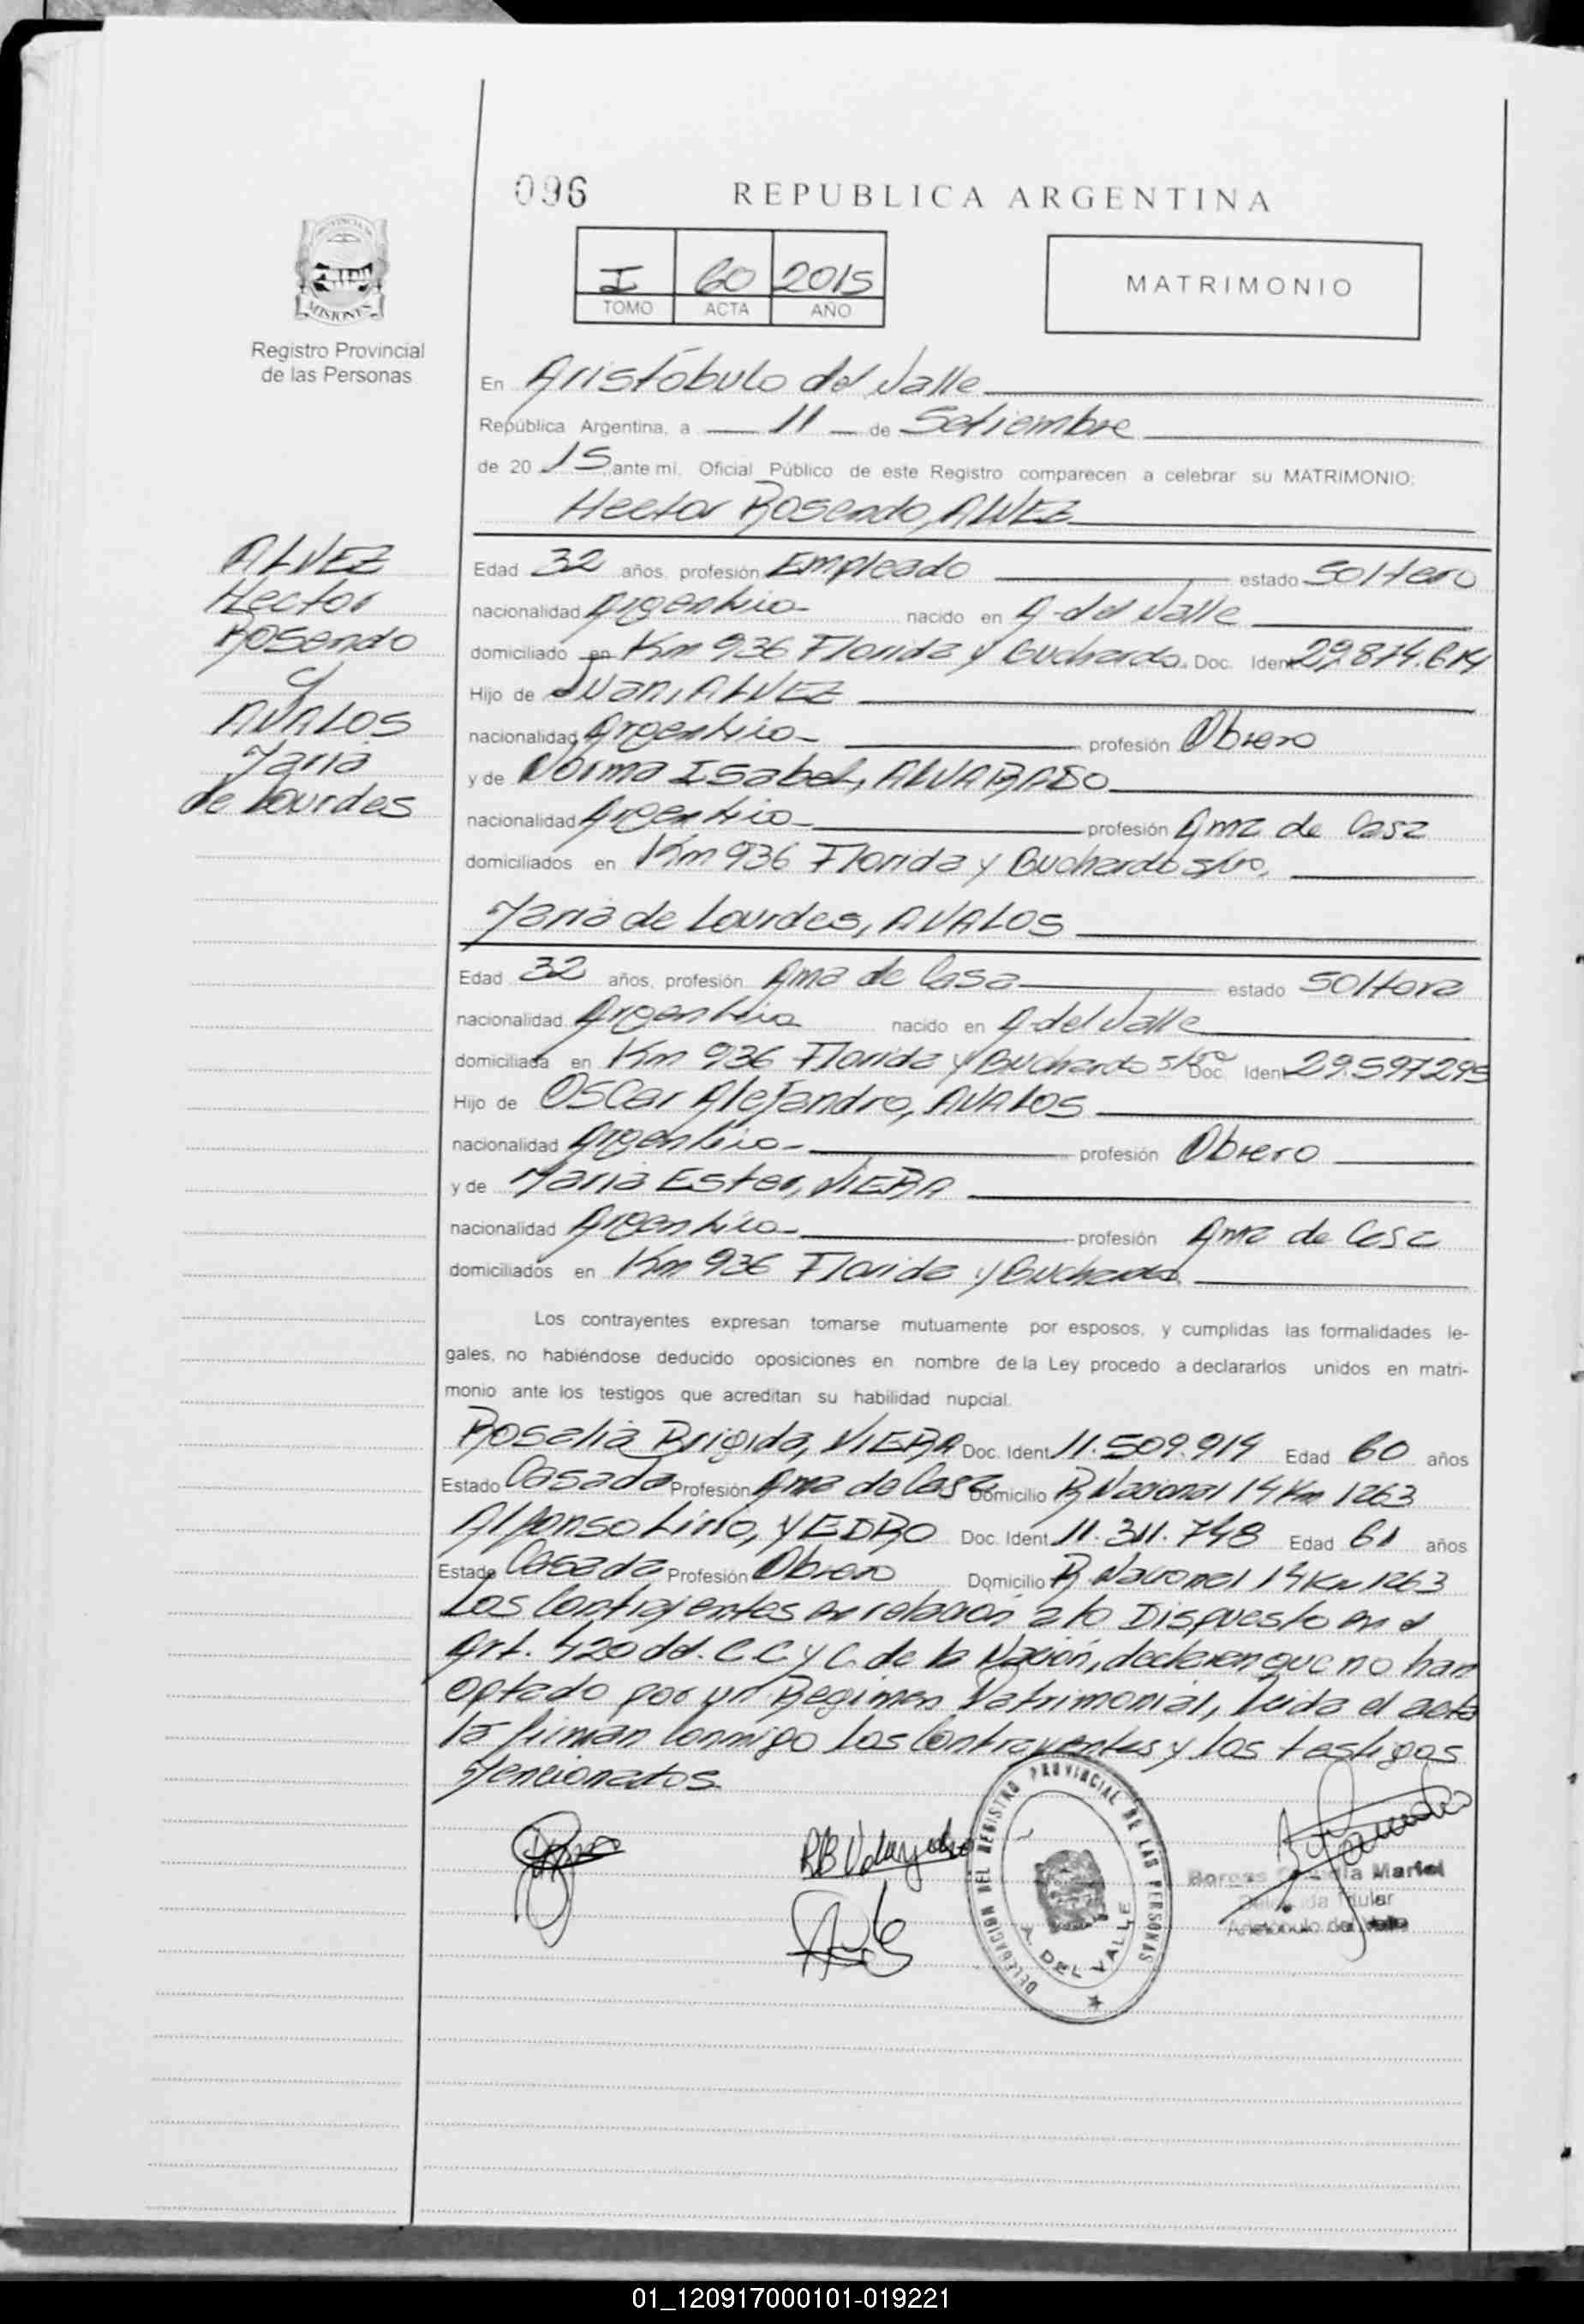 096
REPUBLICA ARGENTINA
I 60 2015
TOMO ACTA AÑO
MATRIMONIO
PROVINCIA DE
MISIONES
Registro Provincial
de las Personas
En Aristóbulo del Valle
República Argentina, a 11 de Setiembre
de 20 15 ante mí, Oficial Público de este Registro comparecen a celebrar su MATRIMONIO:
Hector Rosendo, ALVEZ
ALVEZ
Hector
Rosendo
y
AVALOS
Maria
de Lourdes
Edad 32 años, profesión Empleado estado Soltero
nacionalidad Argentino nacido en A. del Valle
domiciliado en Km 936 Florida y Buchardo. Doc. Ident 29.874.614
Hijo de Juan, ALVEZ
nacionalidad Argentino profesión Obrero
y de Norma Isabel, ALVARADO
nacionalidad Argentina profesión Ama de Casa
domiciliados en Km 936 Florida y Buchardo s/nro,
Maria de Lourdes, AVALOS
Edad 32 años, profesión Ama de Casa estado Soltera
nacionalidad Argentina nacido en A. del Valle
domiciliada en Km 936 Florida y Buchardo s/nro Doc. Ident 29.597295
Hijo de Oscar Alejandro, AVALOS
nacionalidad Argentino profesión Obrero
y de Maria Ester, VIERA
nacionalidad Argentina profesión Ama de Casa
domiciliados en Km 936 Florida y Buchardo
Los contrayentes expresan tomarse mutuamente por esposos, y cumplidas las formalidades le-
gales, no habiéndose deducido oposiciones en nombre de la Ley procedo a declararlos unidos en matri-
monio ante los testigos que acreditan su habilidad nupcial.
Roselia Brigida, VIERA Doc. Ident 11.509.914 Edad 60 años
Estado Casada Profesión Ama de Casa Domicilio R Nacional 14 Km 1263
Alfonso Lirio, YEDRO Doc. Ident 11.311.748 Edad 61 años
Estado Casado Profesión Obrero Domicilio R Nacional 14 Km 1263
Los Contrayentes en relación a lo Dispuesto en el
Art. 420 del. C.C. y C. de la Nación, declaran que no han
optado por un Regimen Patrimonial, Leida el acta
la firman conmigo Los Contrayentes y los testigos
Mencionados.
DELEGACION DEL REGISTRO PROVINCIAL DE LAS PERSONAS
A. DEL VALLE
Borges Mariel
Titular
Aristóbulo del Valle
01_120917000101-019221